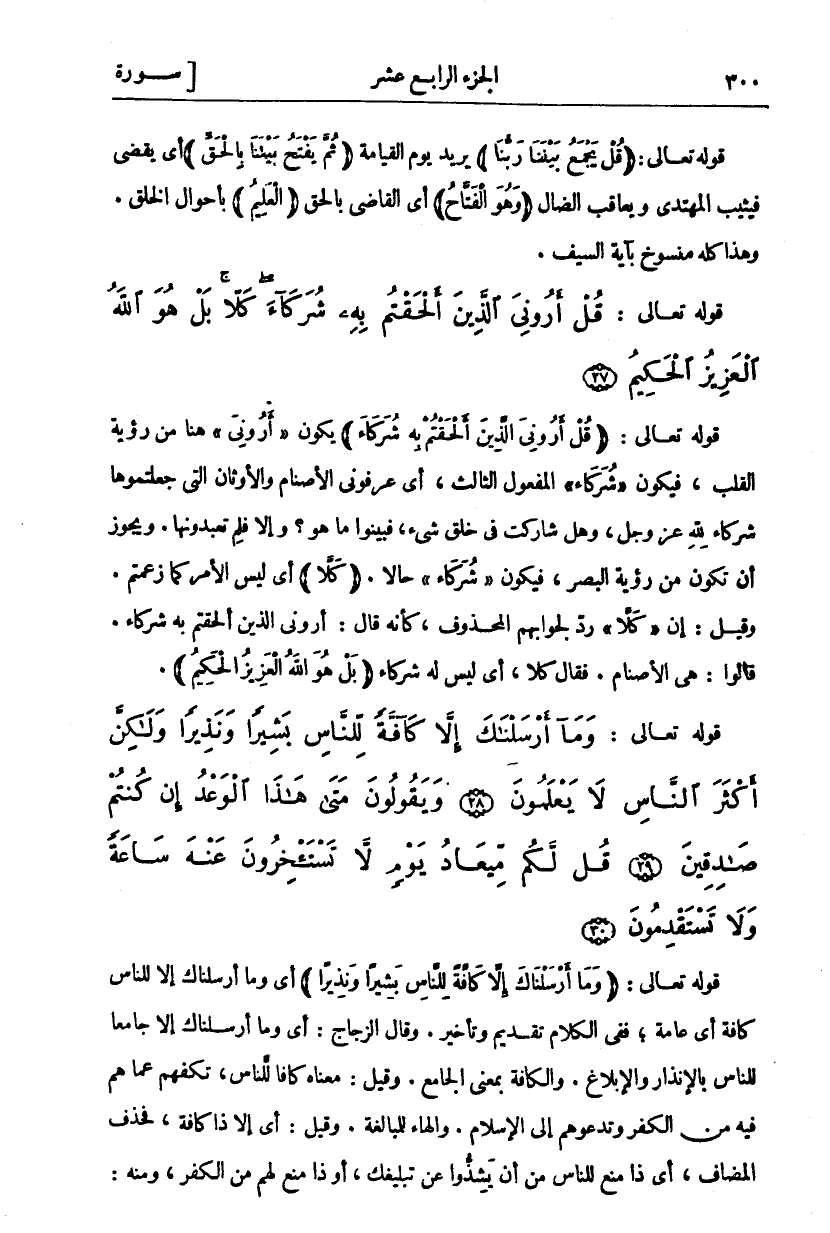 ٣٠٠ الجزء الرابع عشر [ ســورة
قوله تعالى: ﴿قُلْ يَجْمَعُ بَيْنَنَا رَبُّنَا﴾ يريد يوم القيامة ﴿ثُمَّ يَفْتَحُ بَيْنَنَا بِالْحَقِّ﴾ أى يقضى
فيثيب المهتدى ويعاقب الضال ﴿وَهُوَ الْفَتَّاحُ﴾ أى القاضى بالحق ﴿الْعَلِيمُ﴾ بأحوال الخلق .
وهذا كله منسوخ بآية السيف .
قوله تعـالى : قُلْ أَرُونِىَ ٱلَّذِينَ أَلْحَقْتُم بِهِۦ شُرَكَآءَۖ كَلَّاۚ بَلْ هُوَ ٱللَّهُ
ٱلْعَزِيزُ ٱلْحَكِيمُ ﴿٢٧﴾
قوله تعـالى : ﴿قُلْ أَرُونِىَ الَّذِينَ أَلْحَقْتُمْ بِهِ شُرَكَاءَ﴾ يكون « أَرُونِىَ » هنا من رؤية
القلب ، فيكون «شُرَكَاء» المفعول الثالث ، أى عرفونى الأصنام والأوثان التى جعلتموها
شركاء لِلّٰهِ عز وجل ، وهل شاركت فى خلق شىء ، فبينوا ما هو ؟ وإلا فلِم تعبدونها . ويجوز
أن تكون من رؤية البصر ، فيكون « شُرَكَاء » حالا . ﴿كَلَّا﴾ أى ليس الأمر كما زعمتم .
وقيـل : إن « كَلَّا » ردّ لجوابهم المحـذوف ، كأنه قال : أرونى الذين ألحقتم به شركاء .
قالوا : هى الأصنام . فقال كلا ، أى ليس له شركاء ﴿بَلْ هُوَ اللهُ الْعَزِيزُ الْحَكِيمُ﴾ .
قوله تعـالى : وَمَآ أَرْسَلْنَٰكَ إِلَّا كَآفَّةً لِّلنَّاسِ بَشِيرًا وَنَذِيرًا وَلَٰكِنَّ
أَكْثَرَ ٱلنَّاسِ لَا يَعْلَمُونَ ﴿٢٨﴾ وَيَقُولُونَ مَتَىٰ هَٰذَا ٱلْوَعْدُ إِن كُنتُمْ
صَٰدِقِينَ ﴿٢٩﴾ قُل لَّكُم مِّيعَادُ يَوْمٍ لَّا تَسْتَـْٔخِرُونَ عَنْهُ سَاعَةً
وَلَا تَسْتَقْدِمُونَ ﴿٣٠﴾
قوله تعـالى : ﴿وَمَا أَرْسَلْنَاكَ إِلَّا كَافَّةً لِلنَّاسِ بَشِيرًا وَنَذِيرًا﴾ أى وما أرسلناك إلا للناس
كافة أى عامة ؛ ففى الكلام تقـديم وتأخير . وقال الزجاج : أى وما أرسـلناك إلا جامعا
للناس بالإنذار والإبلاغ . والكافة بمعنى الجامع . وقيل : معناه كافا للّناس ، تكفهم عما هم
فيه من الكفر وتدعوهم إلى الإسلام . والهاء للبالغة . وقيل : أى إلا ذا كافة ، فحذف
المضاف ، أى ذا منع للناس من أن يَشِذُّوا عن تبليغك ، أو ذا منع لهم من الكفر ، ومنه :